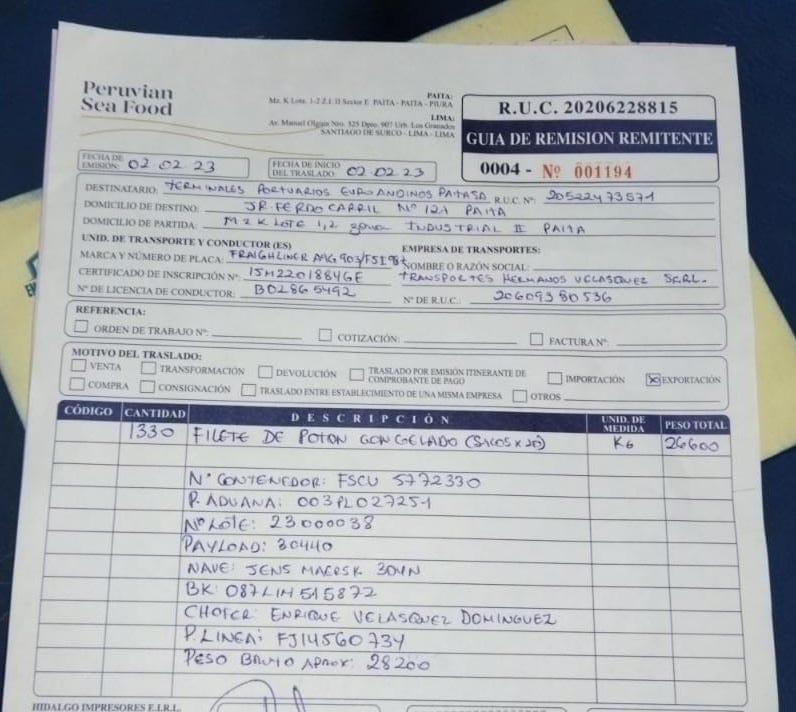 Peruvian
Sea Food
PAITA:
Mz. K Lote. 1-2 Z.I. II Sector E PAITA - PAITA - PIURA
LIMA:
Av. Manuel Olguin Nro. 325 Dpto. 907 Urb. Los Granados
SANTIAGO DE SURCO - LIMA - LIMA
R.U.C. 20206228815
GUIA DE REMISION REMITENTE
0004 - Nº 001194
FECHA DE EMISIÓN: 02.02.23
FECHA DE INICIO DEL TRASLADO: 02.02.23
DESTINATARIO: TERMINALES PORTUARIOS EUROANDINOS PAITA SA R.U.C. Nº: 20522473571
DOMICILIO DE DESTINO: JR. FERROCARRIL Nº 127 PAITA
DOMICILIO DE PARTIDA: MZ K LOTE 1,2 zona INDUSTRIAL II PAITA
UNID. DE TRANSPORTE Y CONDUCTOR (ES)
EMPRESA DE TRANSPORTES:
MARCA Y NÚMERO DE PLACA: FRAIGHLINER
NOMBRE O RAZÓN SOCIAL:
CERTIFICADO DE INSCRIPCIÓN Nº: 15M22018846E
TRANSPORTES HERMANOS VELASQUEZ SCRL.
Nº DE LICENCIA DE CONDUCTOR: B02865492
Nº DE R.U.C.: 20609380536
REFERENCIA:
ORDEN DE TRABAJO Nº: COTIZACIÓN: FACTURA Nº:
MOTIVO DEL TRASLADO:
VENTA TRANSFORMACIÓN DEVOLUCIÓN TRASLADO POR EMISIÓN ITINERANTE DE COMPROBANTE DE PAGO IMPORTACIÓN EXPORTACIÓN
COMPRA CONSIGNACIÓN TRASLADO ENTRE ESTABLECIMIENTO DE UNA MISMA EMPRESA OTROS
CÓDIGO CANTIDAD DESCRIPCIÓN UNID. DE MEDIDA PESO TOTAL
1330 FILETE DE POTON CONGELADO (SACOS x 20) KG 26600
Nº CONTENEDOR: FSCU 5772330
P. ADUANA: 003PL027251
Nº LOTE: 23000038
PAYLOAD: 30440
NAVE: JENS MAERSK 304N
BK: 087LIM515872
CHOFER: ENRIQUE VELASQUEZ DOMINGUEZ
P. LINEA: FJ14560734
PESO BRUTO APROX: 28200
HIDALGO IMPRESORES E.I.R.L.